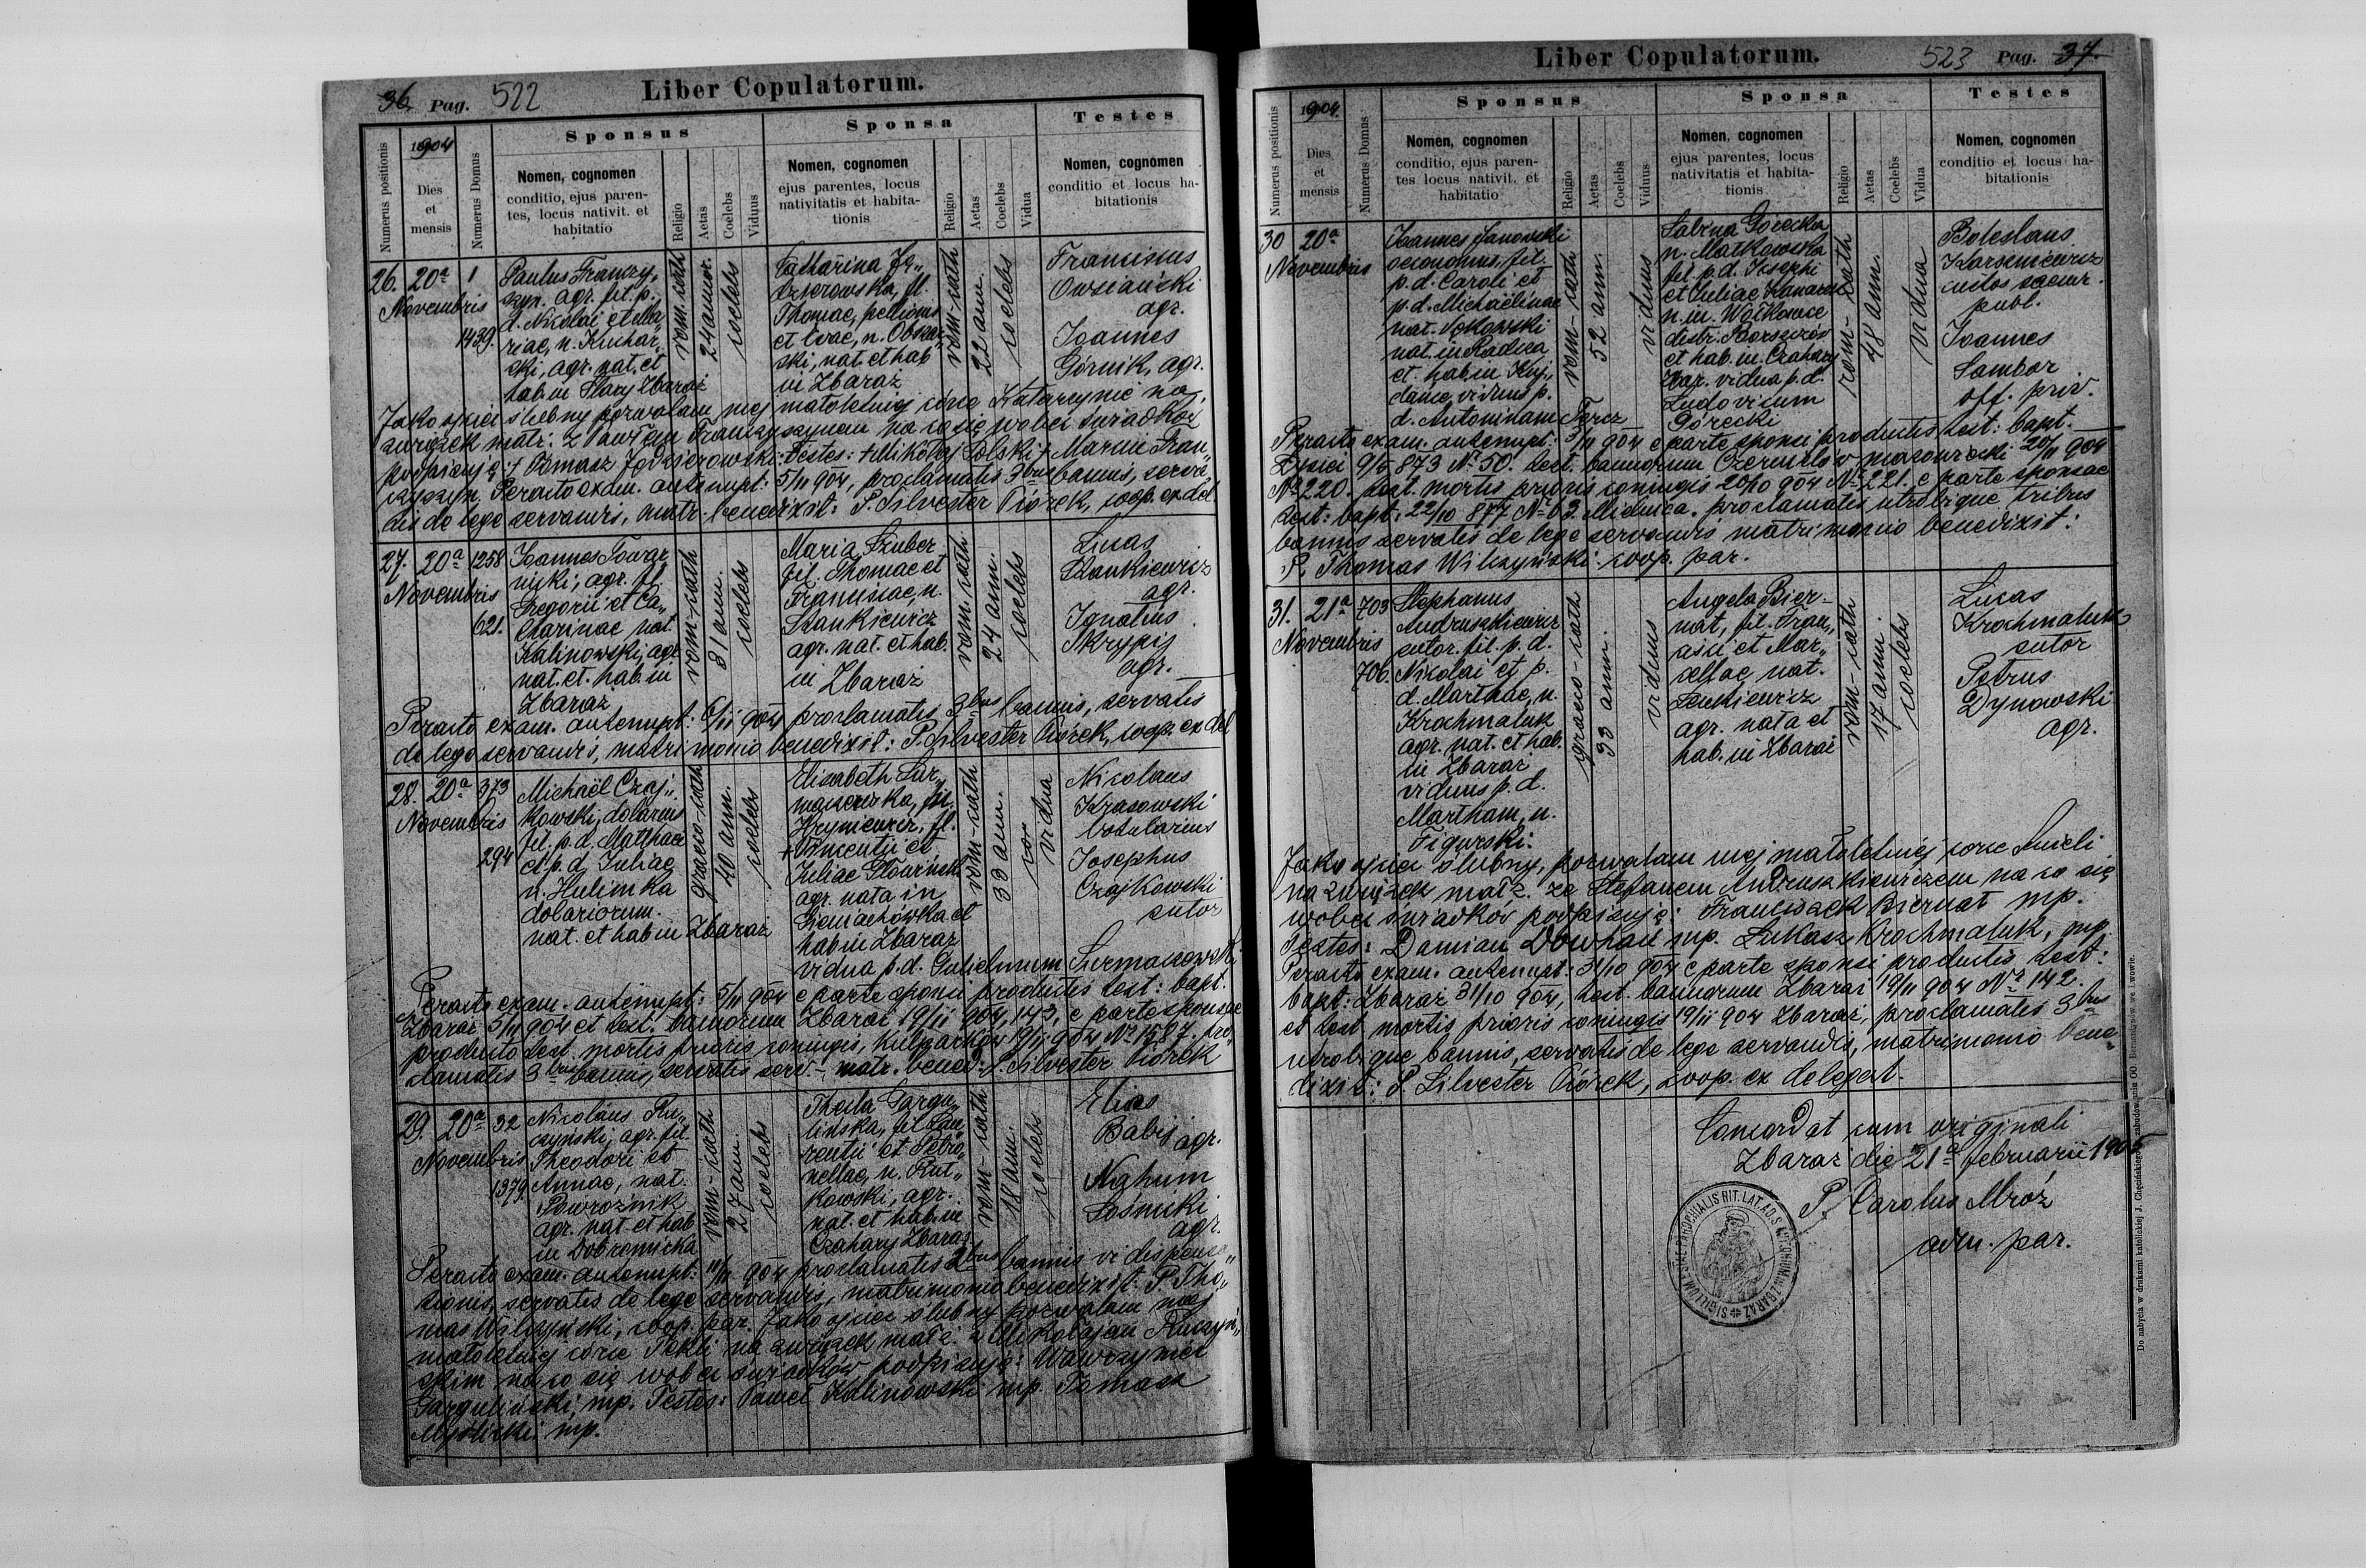 36 Pag. 522
Liber Copulatorum.
Numerus positionis
1904
Dies
et
mensis
Numerus Domus
Sponsus
Nomen, cognomen
conditio, ejus paren-
tes, locus nativit. et
habitatio
Religio
Aetas
Coelebs
Viduus
Sponsa
Nomen, cognomen
ejus parentes, locus
nativitatis et habita-
tionis
Religio
Aetas
Coelebs
Vidua
Testes
Nomen, cognomen
conditio et locus ha-
bitationis
26. 20ª
Novembris
1
1439.
Paulus Franczy„
szyn, agr. fil. p.
d. Nicolai et Ma„
riae, n. Kuchar„
ski, agr. nat. et
hab. in Stary Zbaraż
rom.-cath
24 annor.
coelebs
Catharina Ja„
Thomae, pellionis
et Evae, n. Obszar„
ski, nat. et hab
in Zbaraż
rom-cath
22 ann.
coelebs
Franciscus
Owsiański
agr.
Joannes
Górnik, agr.
Jako ojciec ślubny pozwalam mej małoletniej córce Katarzynie na
związek małż. z Pawłem Franczyszynem na co się wobec świadków
podpisuję: + Tomasz Testes: + Mikołaj Polski + Marcin Fran„
czyszyn. Peracto exam. antenupt: 5/11 904, proclamatis 3bus bannis, serva„
tis de lege servandis, matr. benedixit: P. Silvester Piórek, coop. ex del
27. 20ª
Novembris
1258
621.
Joannes Towar„
nicki, agr. fil.
Gregorii et Ca„
tharinae nat.
Kalinowski, agr.
nat. et. hab. in
Zbaraż
rom-cath
31 ann.
coelebs
Maria Szuber
fil. Thomae et
Franciscae, n.
Stankiewicz
agr. nat. et hab.
in Zbaraż
rom. cath
24 ann.
coelebs
Lucas
Stankiewicz
agr.
Ignatius
Skrypij
agr.
Peracto exam. antenupt: 6/11 904 proclamatis 3bus bannis, servatis
de lege servandis, matrimonio benedixit: P. Silvester Piórek, coop. ex del
28. 20ª
Novembris
373
294
Michaël Czaj„
kowski, dolarius
fil. p. d. Matthaei
et p. d. Juliae
n. Hulimka
dolariorum.
nat. et hab in Zbaraż
graeco-cath
40 ann.
coelebs
Elisabeth Sur„
maczewska, fil.
Hryniewicz, fl.
+ Vincentii et
Juliae
agr. nata in
et
hab in Zbaraż
vidua p. d. Gulielmum Surmaczewski
rom-cath
33 ann.
vidua
Nicolaus
Krasowski
botularius
Josephus
Czajkowski
sutor
Peracto exam. antenupt: 5/11 904 e parte sponsi productis test: bapt.
Zbaraż 5/11 904 et test. bannorum Zbaraż 19/11 904, 143, e parte sponsae
producto test. mortis prioris coniugis, Kulparków 19/11 904 Nº 1587. pro„
clamatis 3bus bannis, servatis serv.- matr. bened: P. Silvester Piórek
29. 20ª
Novembris
32
1379.
Nicolaus Ru„
czyński, agr. fil.
Theodori et
Annae, nat.
Powroźnik
agr. nat. et hab
in Dobromirka
rom-cath
27 ann.
coelebs
Thecla Gargu„
lińska, fil. Lau„
rentii et Petro„
nellae, n. Rut„
kowski, agr.
nat. et hab. in
Czahary Zbaraż
rom-cath
18 ann.
coelebs
Elias
Babij agr.
Nahum
Łośnicki
agr.
Peracto exam. antenupt: 11/11 904 proclamatis 2bus bannis vi dispensa„
tionis, servatis de lege servandis, matrimonio benedixit: P. Tho„
mas Wilczyński, coop. par. Jako ojciec ślubny pozwalam mej
małoletniej córce Tekli na związek małż. z Mikołajem Ruczyń„
skim na co się wobec świadków podpisuję: Wawrzyniec
Garguliński, mp. Testes: Paweł Kalinowski mp. Tomasz
Myślicki mp.
Liber Copulatorum.
523 Pag. 37.
Numerus positionis
1904.
Dies
et
mensis
Numerus Domus
Sponsus
Nomen, cognomen
conditio, ejus paren-
tes locus nativit. et
habitatio
Religio
Aetas
Coelebs
Viduus
Sponsa
Nomen, cognomen
ejus parentes, locus
nativitatis et habita-
tionis
Religio
Aetas
Coelebs
Vidua
Testes
Nomen, cognomen
conditio et locus ha-
bitationis
30 20ª
Novembris
Joannes Janowski
oeconomus, fil.
p. d. Caroli et
p. d. Michaëlinae
nat. Sokowski
nat. in Radcza
et. hab. in Kuj„
dańce, viduus p.
d. Antoninam Fercz
rom-cath
52 ann.
viduus
Sabina Górecka
n. Małkowska
fil. p. d. Josephi
et Juliae
n. in. Wołkowce
distr. Borszczów
et hab. in. Czahary
Zbar. vidua p. d.
Ludovicum
Górecki
rom-cath
48 ann.
vidua
Boleslaus
Karseniewicz
custos saecur.
publ.
Joannes
Sambor
off. priv.
Peracto exam. antenupt: 5/11 904 e parte sponsi productis test: bapt.
Łysiec 9/5 873 Nº 50. test. bannorum Czernelów mazowiecki 20/11 904
Nº 220. test. mortis prioris coniugis 20/10 904 Nº 221. e parte sponsae
test: bapt. 22/10 877 Nº 63. Mielnica. proclamatis utrobique tribus
bannis servatis de lege servandis matrimonio benedixit:
P. Thomas Wilczyński coop. par.
31. 21ª
Novembris
703
706.
Stephanus
Andruszkiewicz
sutor. fil. p. d.
Nikolai et p.
d. Marthae, n.
Krochmaluk
agr. nat. et hab.
in Zbaraż
viduus p. d.
Martham, n.
Figurski.
graeco-cath
33 ann.
viduus
Angela Bier-
nat, fil. Fran„
cisci et Mar„
cellae, nat.
Lenkiewicz
agr. nata et
hab. in Zbaraż
rom-cath
17 ann.
coelebs
Lucas
Krochmaluk
sutor
Petrus
Dynowski
agr.
Jako ojciec ślubny, pozwalam mej małoletniej córce Anieli
na związek małż. ze Stefanem Andruszkiewiczem na co się
wobec świadków podpisuję: Franciszek Biernat mp.
Testes: Damian Dowhań mp. Łukasz Krochmaluk, mp.
Peracto exam. antenupt: 31/10 904 e parte sponsi productis test:
bapt: Zbaraż 31/10 904, test. bannorum Zbaraż 19/11 904 Nº 142.
et test mortis prioris coniugis 19/11 904 Zbaraż, proclamatis 3bus
utrobique bannis, servatis de lege servandis, matrimonio bene„
dixit: P Silvester Piórek, coop. ex delegat.
Concordat cum originali
Zbaraż die 21ª februarii 1905
P. Carolus Mróz
adm. par.
Do nabycia w drukarni katolickiej J. Chęcińskiego, zabudowaniu OO. Bernardynów we Lwowie.